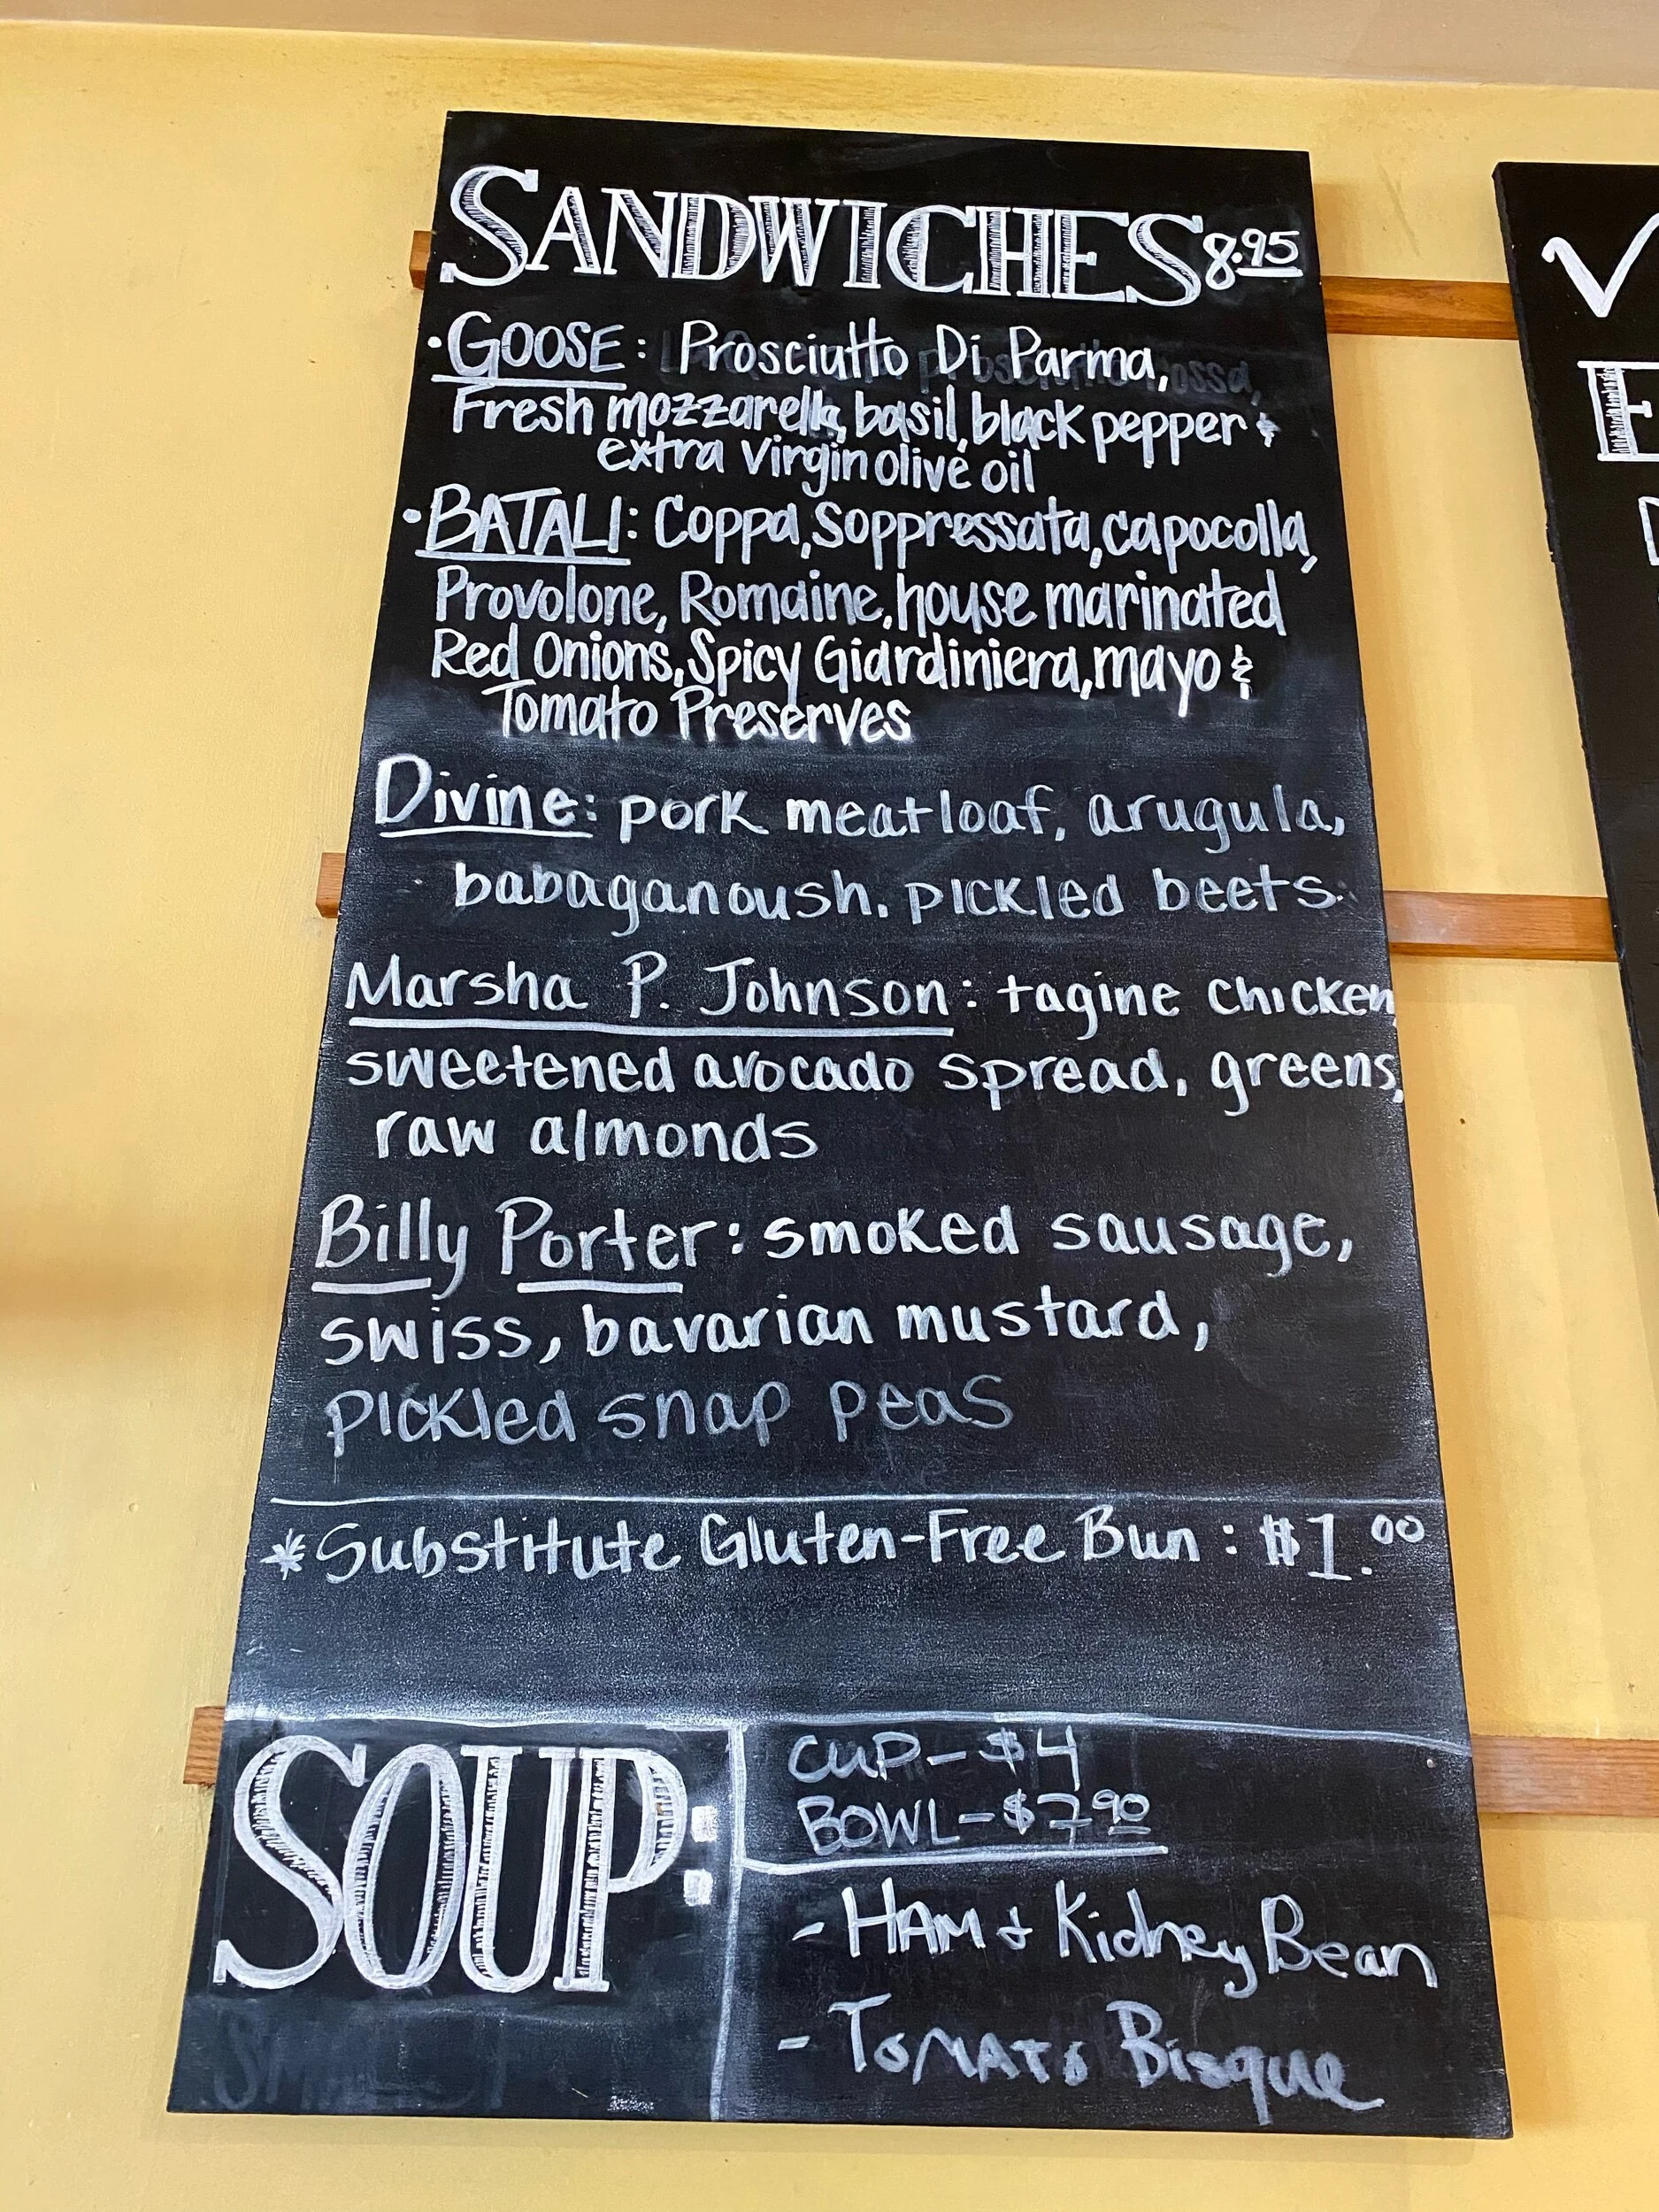 SANDWICHES 8.95
• GOOSE: Prosciutto Di Parma,
Fresh mozzarella, basil, black pepper &
extra virgin olive oil
• BATALI: Coppa, Soppressata, capocolla,
Provolone, Romaine, house marinated
Red Onions, Spicy Giardiniera, mayo &
Tomato Preserves
Divine: pork meatloaf, arugula,
babaganoush. pickled beets.
Marsha P. Johnson: tagine chicken,
sweetened avocado spread, greens,
raw almonds
Billy Porter: smoked sausage,
swiss, bavarian mustard,
pickled snap peas
*Substitute Gluten-Free Bun: $1.00
SOUP:
CUP- $4
BOWL- $7.90
- HAM + Kidney Bean
- TOMATO Bisque